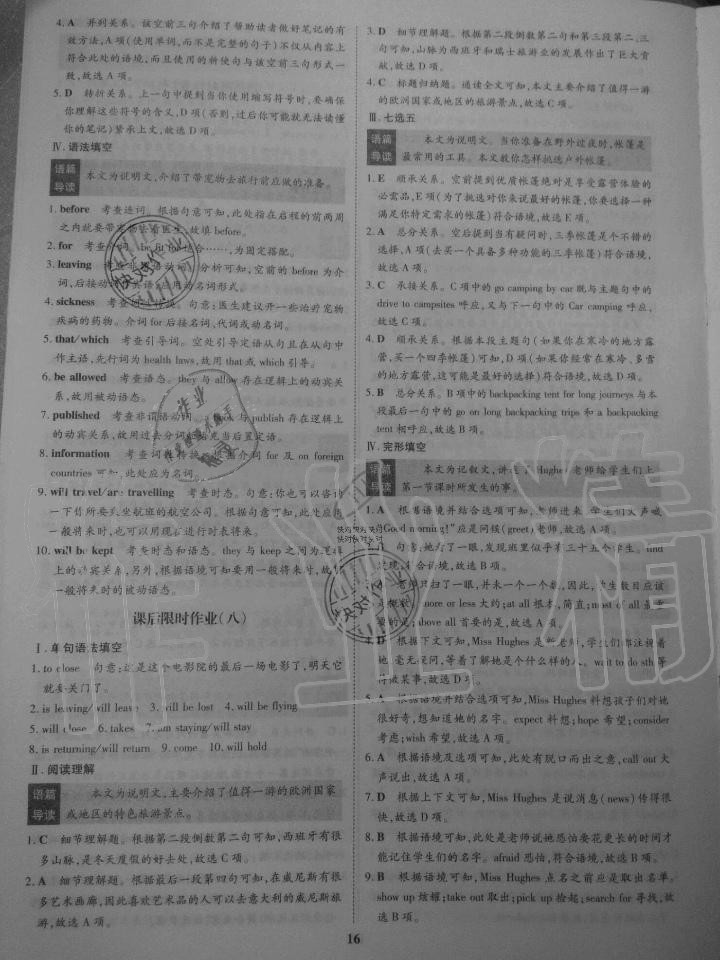 4. A 并列关系。该空前三句介绍了帮助读者做好笔记的有
效方法,A项(使用单词,而不是完整的句子)不仅从内容上
符合此处的语境,而且使用的祈使句与该空前三句形式一
致,故选A项。
5. D 转折关系。上一句中提到当使用缩写符号时,要确保
你理解这些符号的含义,D项(否则,过后你可能就无法读懂
你的笔记)紧承上文,故选D项。
Ⅳ. 语法填空
语篇导读 本文为说明文,介绍了带宠物去旅行前应做的准备。
1. before 考查连词。根据句意可知,此处指在启程的前两周
之内就要带宠物去看医生,故填before。
2. for 考查介词。be fit for适合……,为固定搭配。
3. leaving 考查非谓语动词。分析可知,空前的 before 为介
词,后接动词作宾语,应用动名词形式。
4. sickness 考查词性转换。句意:医生建议开一些治疗宠物
疾病的药物。介词for后接名词、代词或动名词。
5. that/which 考查引导词。空处引导定语从句且在从句中
作主语,先行词为 health laws,故用 that 或 which 引导。
6. be allowed 考查语态。they 与 allow 存在逻辑上的动宾关
系,故用被动语态。
7. published 考查非谓语动词。book 与 publish 存在逻辑上
的动宾关系,故用过去分词作后置定语。
8. information 考查词性转换。根据介词 for 及 on foreign
countries 可知,此处应为名词。
9. will travel/are travelling 考查时态。句意:你也可以咨询
一下你所要乘坐航班的航空公司。根据句意可知,此处应用
一般将来时,也可以用现在进行时表将来。
10. will be kept 考查时态和语态。they 与 keep 之间为逻辑
上的动宾关系。另外,根据语境可知要用一般将来时,故用
一般将来时的被动语态。
课后限时作业(八)
Ⅰ. 单句语法填空
1. to close 句意:这是这个电影院的最后一场电影了,明天它
就要关门了。
2. is leaving/will leave 3. will be lost 4. will be flying
5. will close 6. takes 7. am staying/will stay
8. is returning/will return 9. come 10. will hold
Ⅱ. 阅读理解
语篇导读 本文为说明文,主要介绍了值得一游的欧洲国家
或地区的特色旅游景点。
1. C 细节理解题。根据第二段倒数第二句可知,西班牙有很
多山脉,是冬天度假的好去处,故选C项。
2. A 细节理解题。根据最后一段第四句可知,在威尼斯有很
多艺术画廊,因此喜欢艺术品的人可以去意大利的威尼斯旅
游,故选A项。
3. D 细节理解题。根据第二段倒数第二句和第三段第二、三
句可知,山脉为西班牙和瑞士旅游业的发展作出了巨大贡
献,故选D项。
4. C 标题归纳题。通读全文可知,本文主要介绍了值得一游
的欧洲国家或地区的旅游景点,故选C项。
Ⅲ. 七选五
语篇导读 本文为说明文。当你准备在野外过夜时,帐篷是
最常用的工具。本文教你怎样挑选户外帐篷。
1. E 顺承关系。空前提到优质帐篷绝对是享受露营体验的
必需品,E项(为了挑选对你来说最好的帐篷,你要选择一种
满足你特定需求的帐篷)符合语境,故选E项。
2. A 总分关系。空后提到当有疑问时,三季帐篷是个不错的
选择,A项(去买一个具备多种功能的三季帐篷)符合语境,
故选A项。
3. C 承接关系。C项中的 go camping by car 既与主题句中的
drive to campsites 呼应,又与下一句中的 Car camping 呼应,
故选C项。
4. D 顺承关系。根据本段主题句(如果你在寒冷的地方露
营,买一个四季帐篷)可知,D项(如果你经常在寒冷、多雪
的地方露营,这可能是最好的选择)符合语境,故选D项。
5. B 总分关系。B项中的 backpacking tent for long journeys 与本
段最后一句中的 go on long backpacking trips 和 a backpacking
tent 相呼应,故选B项。
Ⅳ. 完形填空
语篇导读 本文为记叙文,讲述了Hughes老师给学生们上
第一节课时所发生的事。
1. A 根据语境并结合选项可知,老师进来,学生们大声喊
"Good morning!"应是问候(greet)老师,故选A项。
2. B 句意:她为了一下,发现班里似乎有三十五个学生。find
发现,符合语境,故选B项。
老师只扫了一眼,并没有一个一个数,因此,学生数目应该
more or less大约;at all根本,简直;most of all
最重要的是;above all首要的是,故选B项。
4. D 根据下文可知,Miss Hughes 是新老师,学生们都注视着
她,毫无疑问,等着了解她是个什么样的人。wait to do sth 等
待做某事,故选D项。
5. A 根据语境并结合选项可知,Miss Hughes 料想孩子们对她
很好奇,想知道她的名字。expect 料想;hope 希望;consider
考虑;wish 希望,故选A项。
6. A 根据语境及选项可知,此处有脱口而出之意,call out 大
声说出,故选A项。
7. A 根据上下文可知,Miss Hughes 是说消息(news)传得很
快,故选A项。
8. B 根据语境可知,此处是老师说她恐怕要花更长的时间才
能记住学生们的名字。afraid 恐怕,符合语境,故选B项。
9. B 根据语境可知,Miss Hughes 点名之前应是取出名单。
show up 炫耀;take out 取出;pick up 捡起;search for 寻找,故
选B项。
16